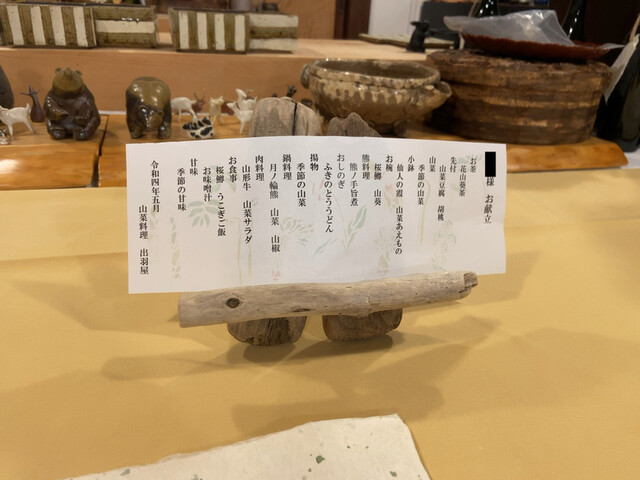 様 お献立
お茶
花山葵茶
先付
山菜豆腐 胡桃
山菜
季節の山菜
小鉢
仙人の霞 山菜あえもの
お椀
桜鱒 山葵
熊料理
熊ノ手旨煮
おしのぎ
ふきのとううどん
揚物
季節の山菜
鍋料理
月ノ輪熊 山菜 山椒
肉料理
山形牛 山菜サラダ
お食事
桜鱒 うこぎご飯
お味噌汁
甘味
季節の甘味
令和四年五月
山菜料理 出羽屋